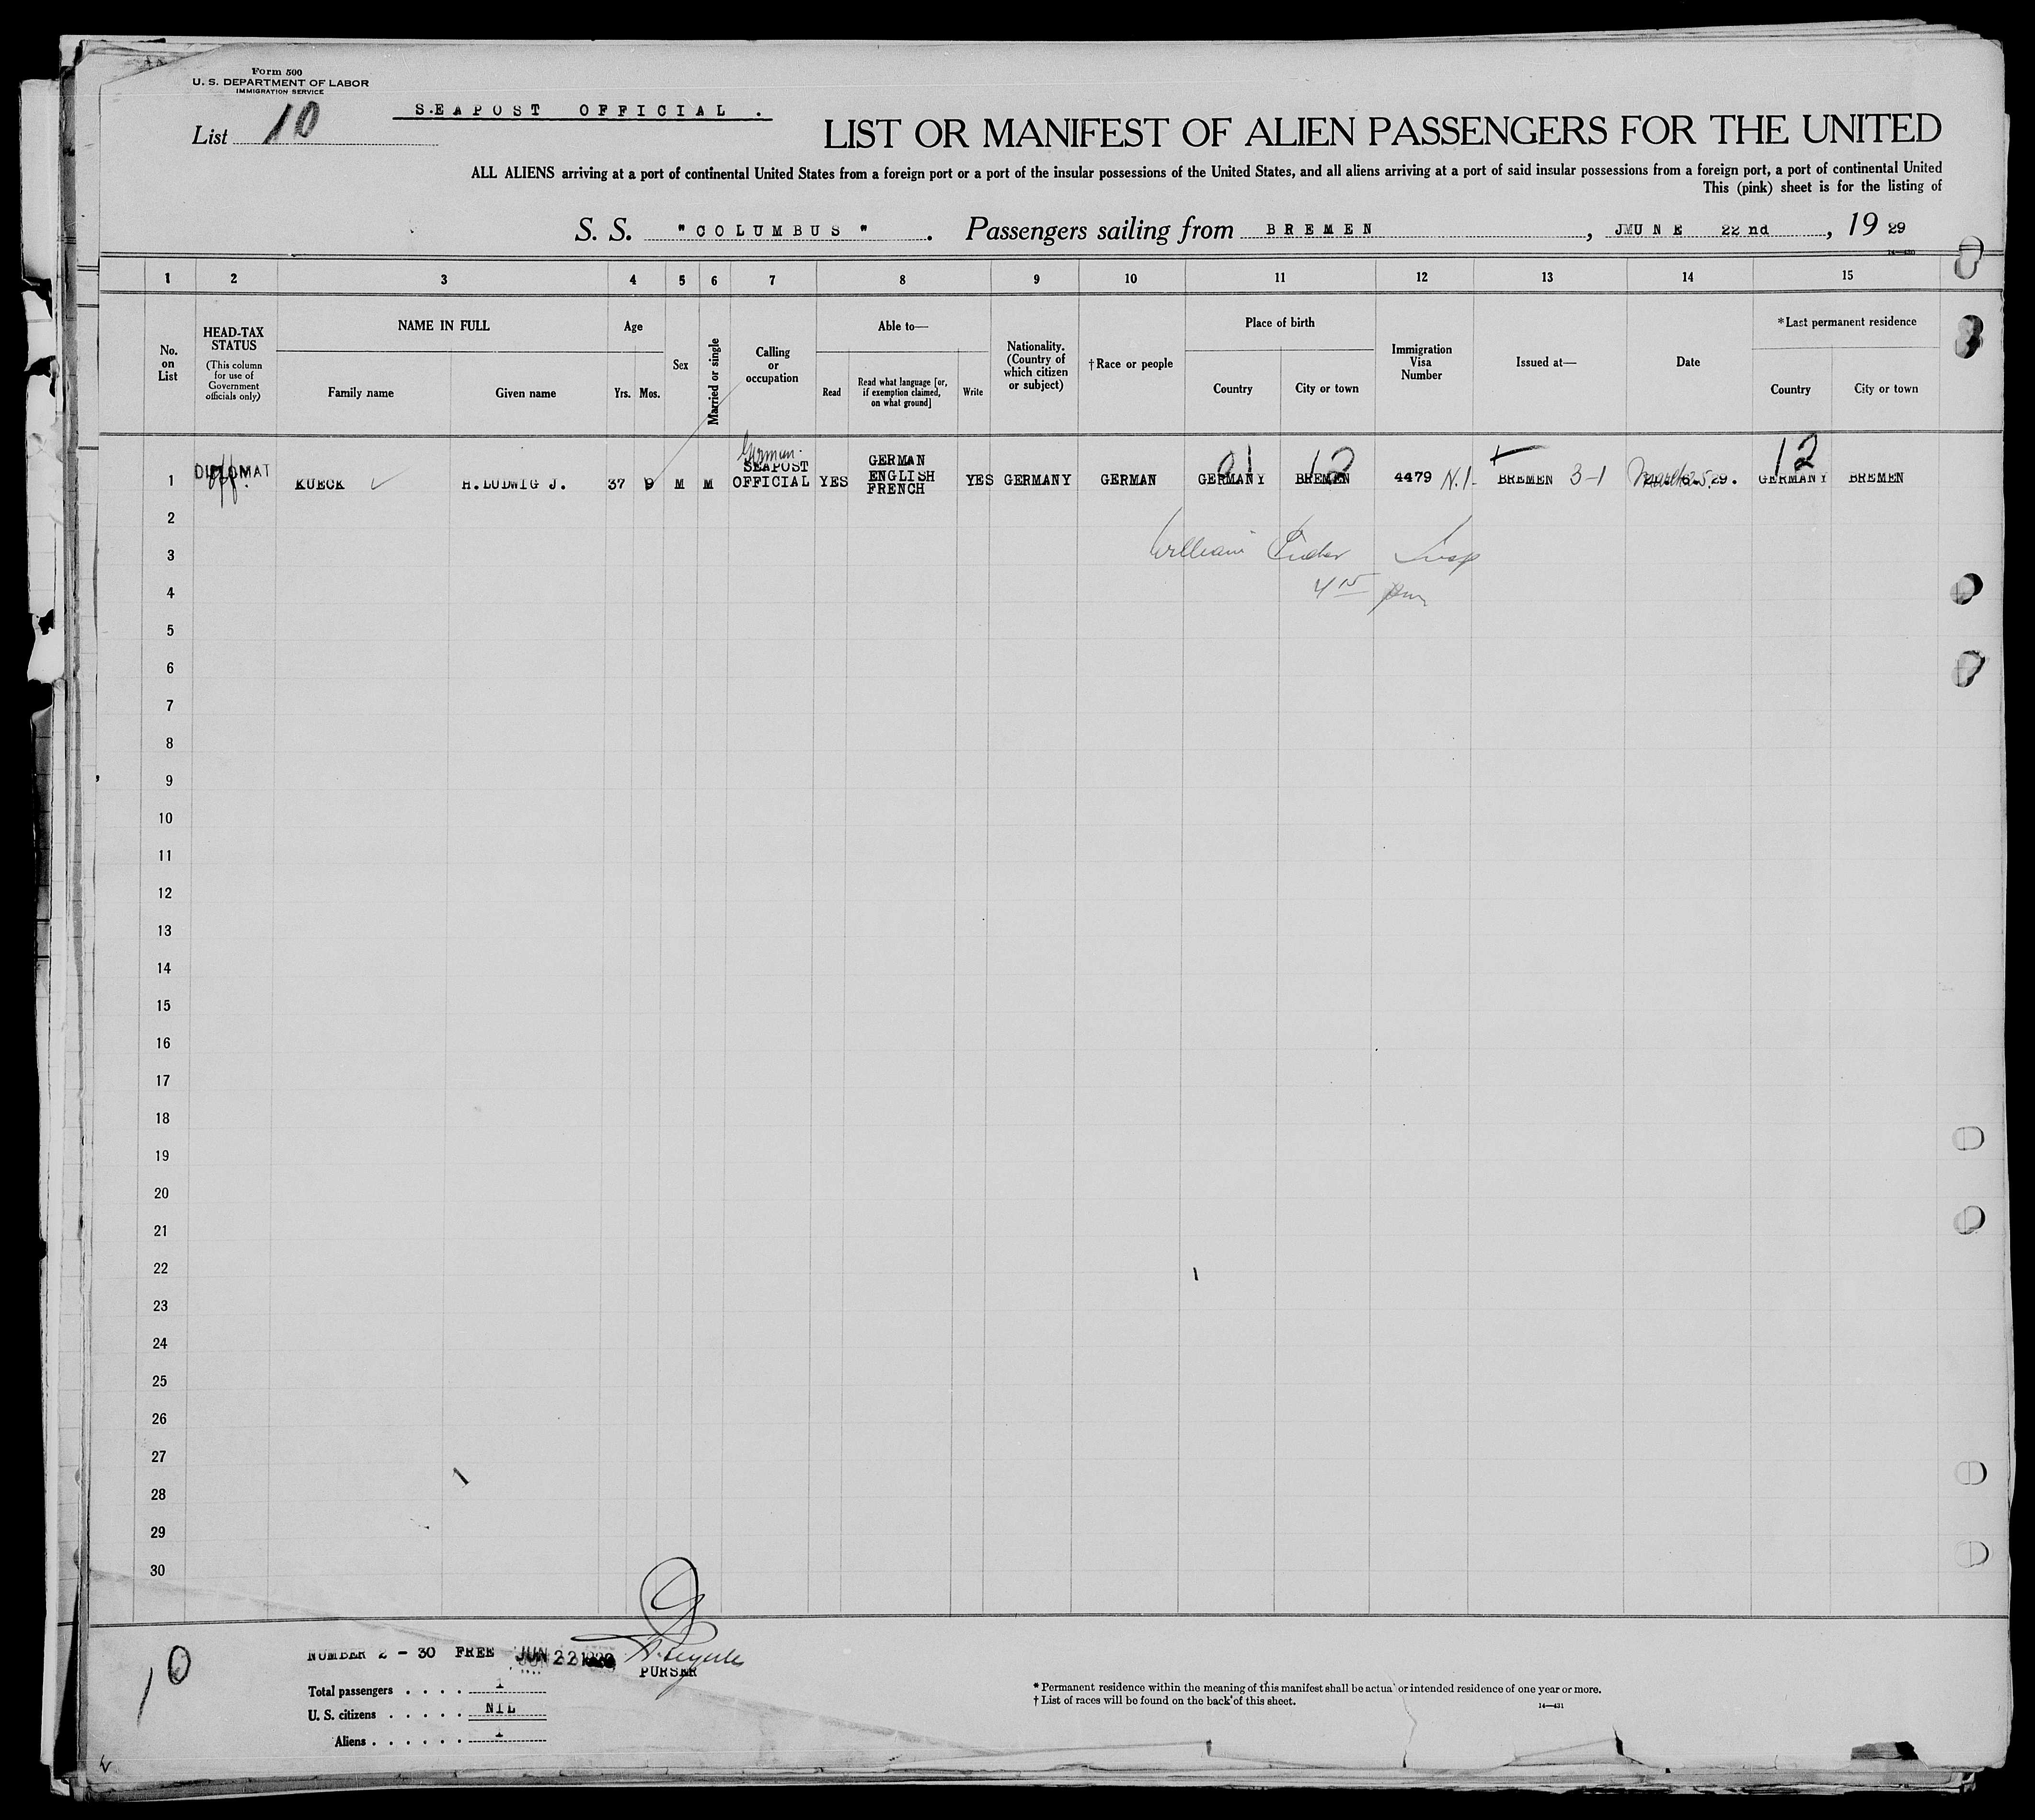 Form 500
U. S. DEPARTMENT OF LABOR
IMMIGRATION SERVICE
SEAPOST OFFICIAL .
List 10
LIST OR MANIFEST OF ALIEN PASSENGERS FOR THE UNITED
ALL ALIENS arriving at a port of continental United States from a foreign port or a port of the insular possessions of the United States, and all aliens arriving at a port of said insular possessions from a foreign port, a port of continental United
This (pink) sheet is for the listing of
S. S. "COLUMBUS" . Passengers sailing from BREMEN , JMUNE 22 nd , 19 29
1 2 3 4 5 6 7 8 9 10 11 12 13 14 15
No. on List
HEAD-TAX STATUS
(This column for use of Government officials only)
NAME IN FULL
Family name Given name
Age
Yrs. Mos.
Sex
Married or single
Calling or occupation
Able to—
Read
Read what language [or, if exemption claimed, on what ground]
Write
Nationality. (Country of which citizen or subject)
†Race or people
Place of birth
Country City or town
Immigration Visa Number
Issued at—
Date
*Last permanent residence
Country City or town
German
21 12 12
1 DIPLOMAT off. KUECK H.LUDWIG J. 37 9 M M SEAPOST OFFICIAL YES GERMAN ENGLISH FRENCH YES GERMANY GERMAN GERMANY BREMEN 4479 N.I- BREMEN 3-1 29. GERMANY BREMEN
2
William Insp
3
4 15 pm
4
5
6
7
8
9
10
11
12
13
14
15
16
17
18
19
20
21
22
23
24
25
26
27
28
29
30
10
NUMBER 2 - 30 FREE JUN 22 1929
PURSER
Total passengers . . . . 1
U. S. citizens . . . . . NIL
Aliens . . . . . . 1
* Permanent residence within the meaning of this manifest shall be actual or intended residence of one year or more.
† List of races will be found on the back of this sheet.
14—431